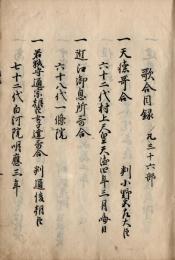 歌合目録 凡三十六部
一 天徳哥合 判小野宮左大臣
六十二代村上天皇天徳四年三月晦日
一 近江御息所哥合
六十八代一條院
一 若狭守通宗朝臣女子達哥合 判通俊朝臣
七十二代白河院應三年